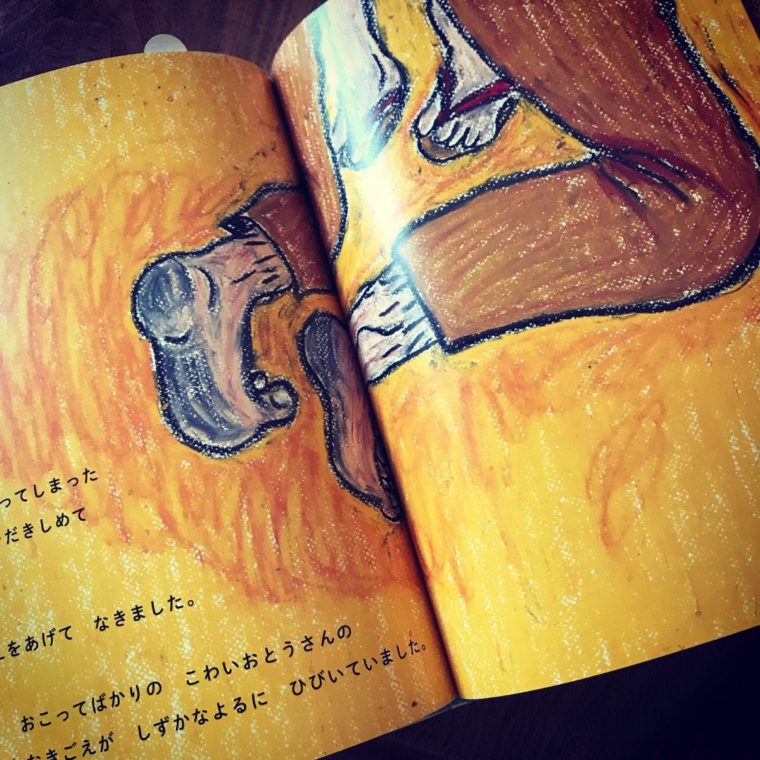 ってしまった
だきしめて
をあげて なきました。
おこってばかりの こわいおとうさんの
なきごえが しずかなよるに ひびいていました。